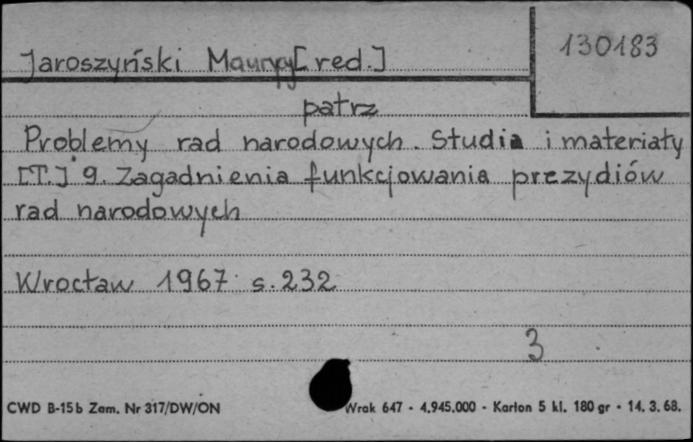 130183
Jaroszyński Maurycy [red.]
patrz
Problemy rad narodowych. Studia i materiały
[T.] 9. Zagadnienia funkcjowania prezydiów
rad narodowych
Wrocław 1967 s. 232
3
CWD B-15b Zam. Nr 317/DW/ON
Wrak 647 - 4.945.000 - Karton 5 kl. 180 gr - 14. 3. 68.